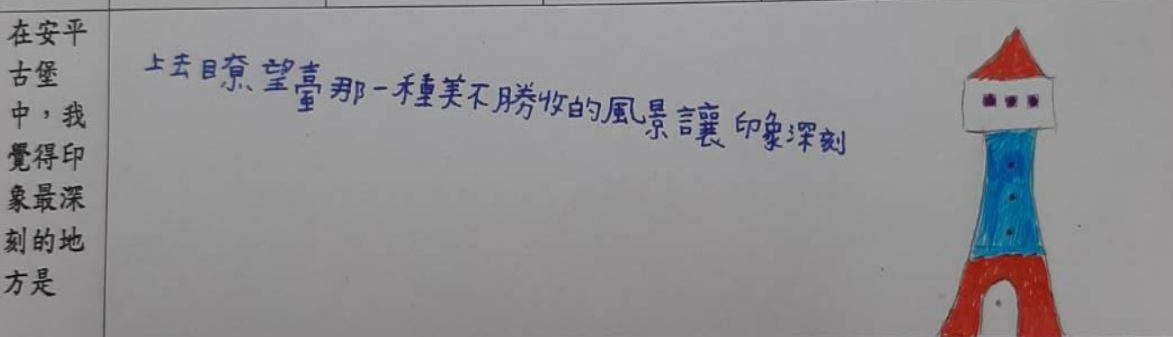 在安平
古堡
中，我
覺得印
象最深
刻的地
方是
上去瞭望臺那一種美不勝收的風景讓印象深刻